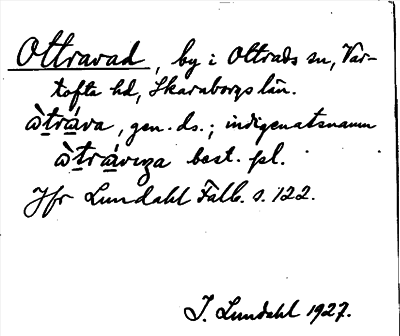 Ottravad, by i Ottrads sn, Var-
tofta hd, Skaraborgs län.
ὰtráva, gen. ds.; indigenatsnamn
ὰtráviza best. pl.
Jfr Lundahl Falb. s. 122.
J. Lundahl 1927.